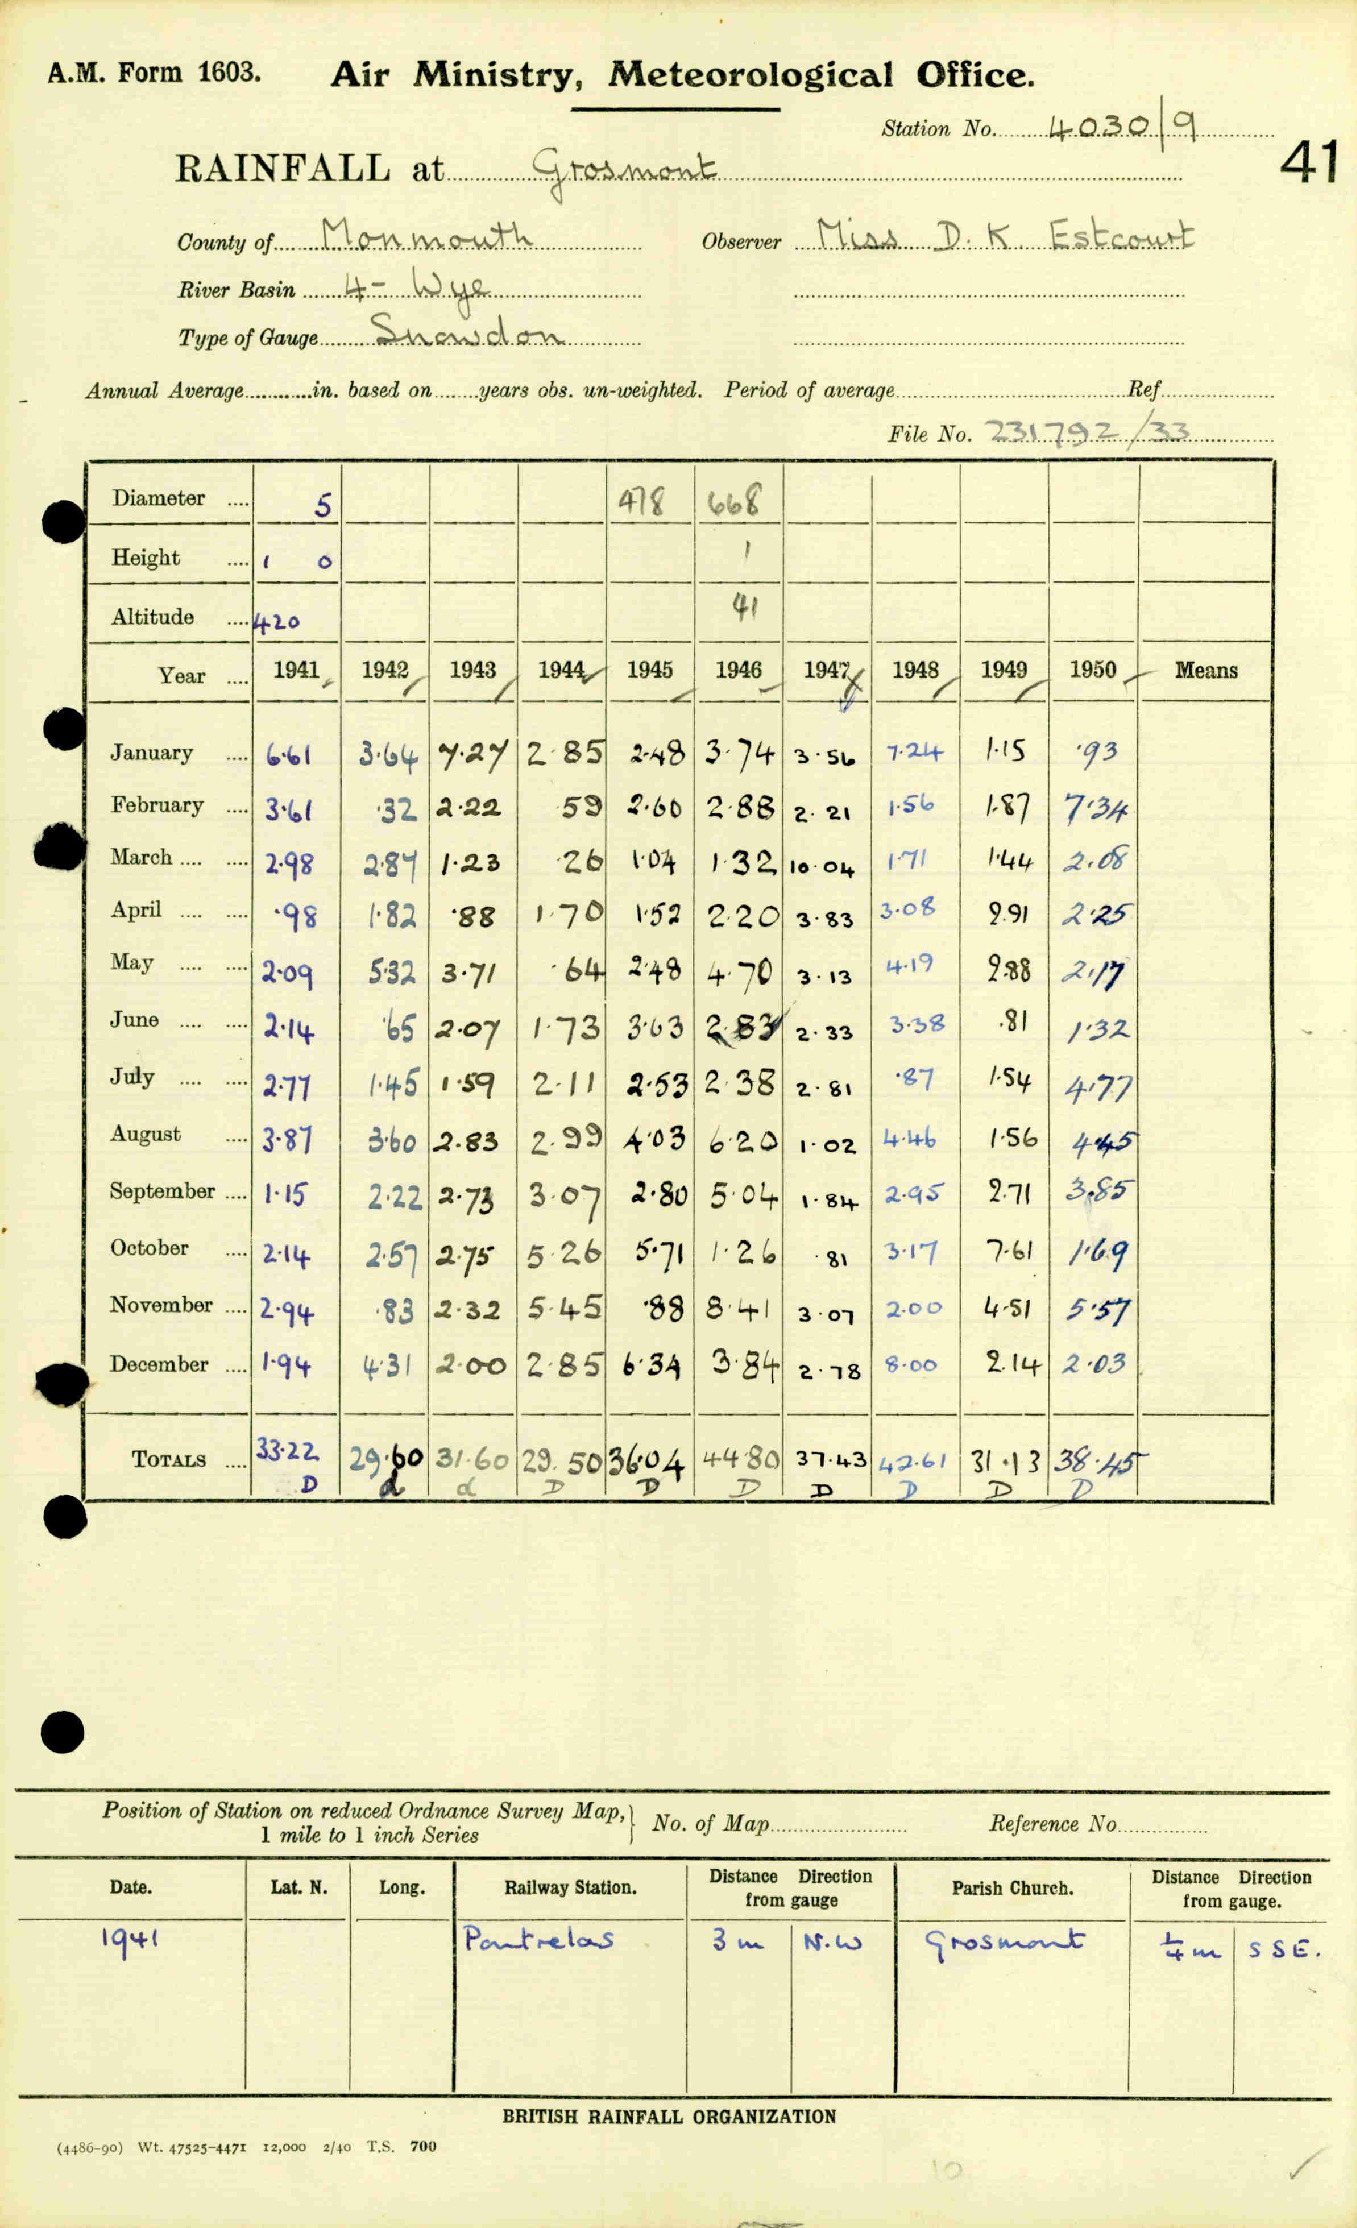 A.M. Form 1603. Air Ministry, Meteorological Office.
Station No. 4030/9
41
RAINFALL at Grosmont
County of Monmouth Observer Miss D. K. Estcourt
River Basin 4 - Wye
Type of Gauge Snowdon
Annual Average in. based on years obs. un-weighted. Period of average Ref
File No. 231792/33
Diameter .... 5 478 668
Height .... 1 0 1
Altitude .... 420 41
Year .... 1941 1942 1943 1944 1945 1946 1947 1948 1949 1950 Means
January .... 6.61 3.64 7.27 2.85 2.48 3.74 3.56 7.24 1.15 .93
February .... 3.61 .32 2.22 59 2.60 2.88 2.21 1.56 1.87 7.34
March .... .... 2.98 2.87 1.23 .26 1.04 1.32 10.04 1.71 1.44 2.08
April .... .... .98 1.82 .88 1.70 1.52 2.20 3.83 3.08 2.91 2.25
May .... .... 2.09 5.32 3.71 .64 2.48 4.70 3.13 4.19 2.88 2.17
June .... .... 2.14 .65 2.07 1.73 3.63 2.83 2.33 3.38 .81 1.32
July .... .... 2.77 1.45 1.59 2.11 2.53 2.38 2.81 .87 1.54 4.77
August .... 3.87 3.60 2.83 2.99 4.03 6.20 1.02 4.46 1.56 4.45
September .... 1.15 2.22 2.73 3.07 2.80 5.04 1.84 2.95 2.71 3.85
October .... 2.14 2.57 2.75 5.26 5.71 1.26 .81 3.17 7.61 1.69
November .... 2.94 .83 2.32 5.45 .88 8.41 3.07 2.00 4.51 5.57
December .... 1.94 4.31 2.00 2.85 6.34 3.84 2.78 8.00 2.14 2.03
TOTALS .... 33.22 29.60 31.60 29.50 36.04 44.80 37.43 42.61 31.13 38.45
D d d D D D D D D D
Position of Station on reduced Ordnance Survey Map, 1 mile to 1 inch Series } No. of Map Reference No.
Date. Lat. N. Long. Railway Station. Distance Direction from gauge Parish Church. Distance Direction from gauge.
1941 Pontrelas 3 m N.W Grosmont ¼ m S S E.
BRITISH RAINFALL ORGANIZATION
(4486-90) Wt. 47525-4471 12,000 2/40 T.S. 700
10